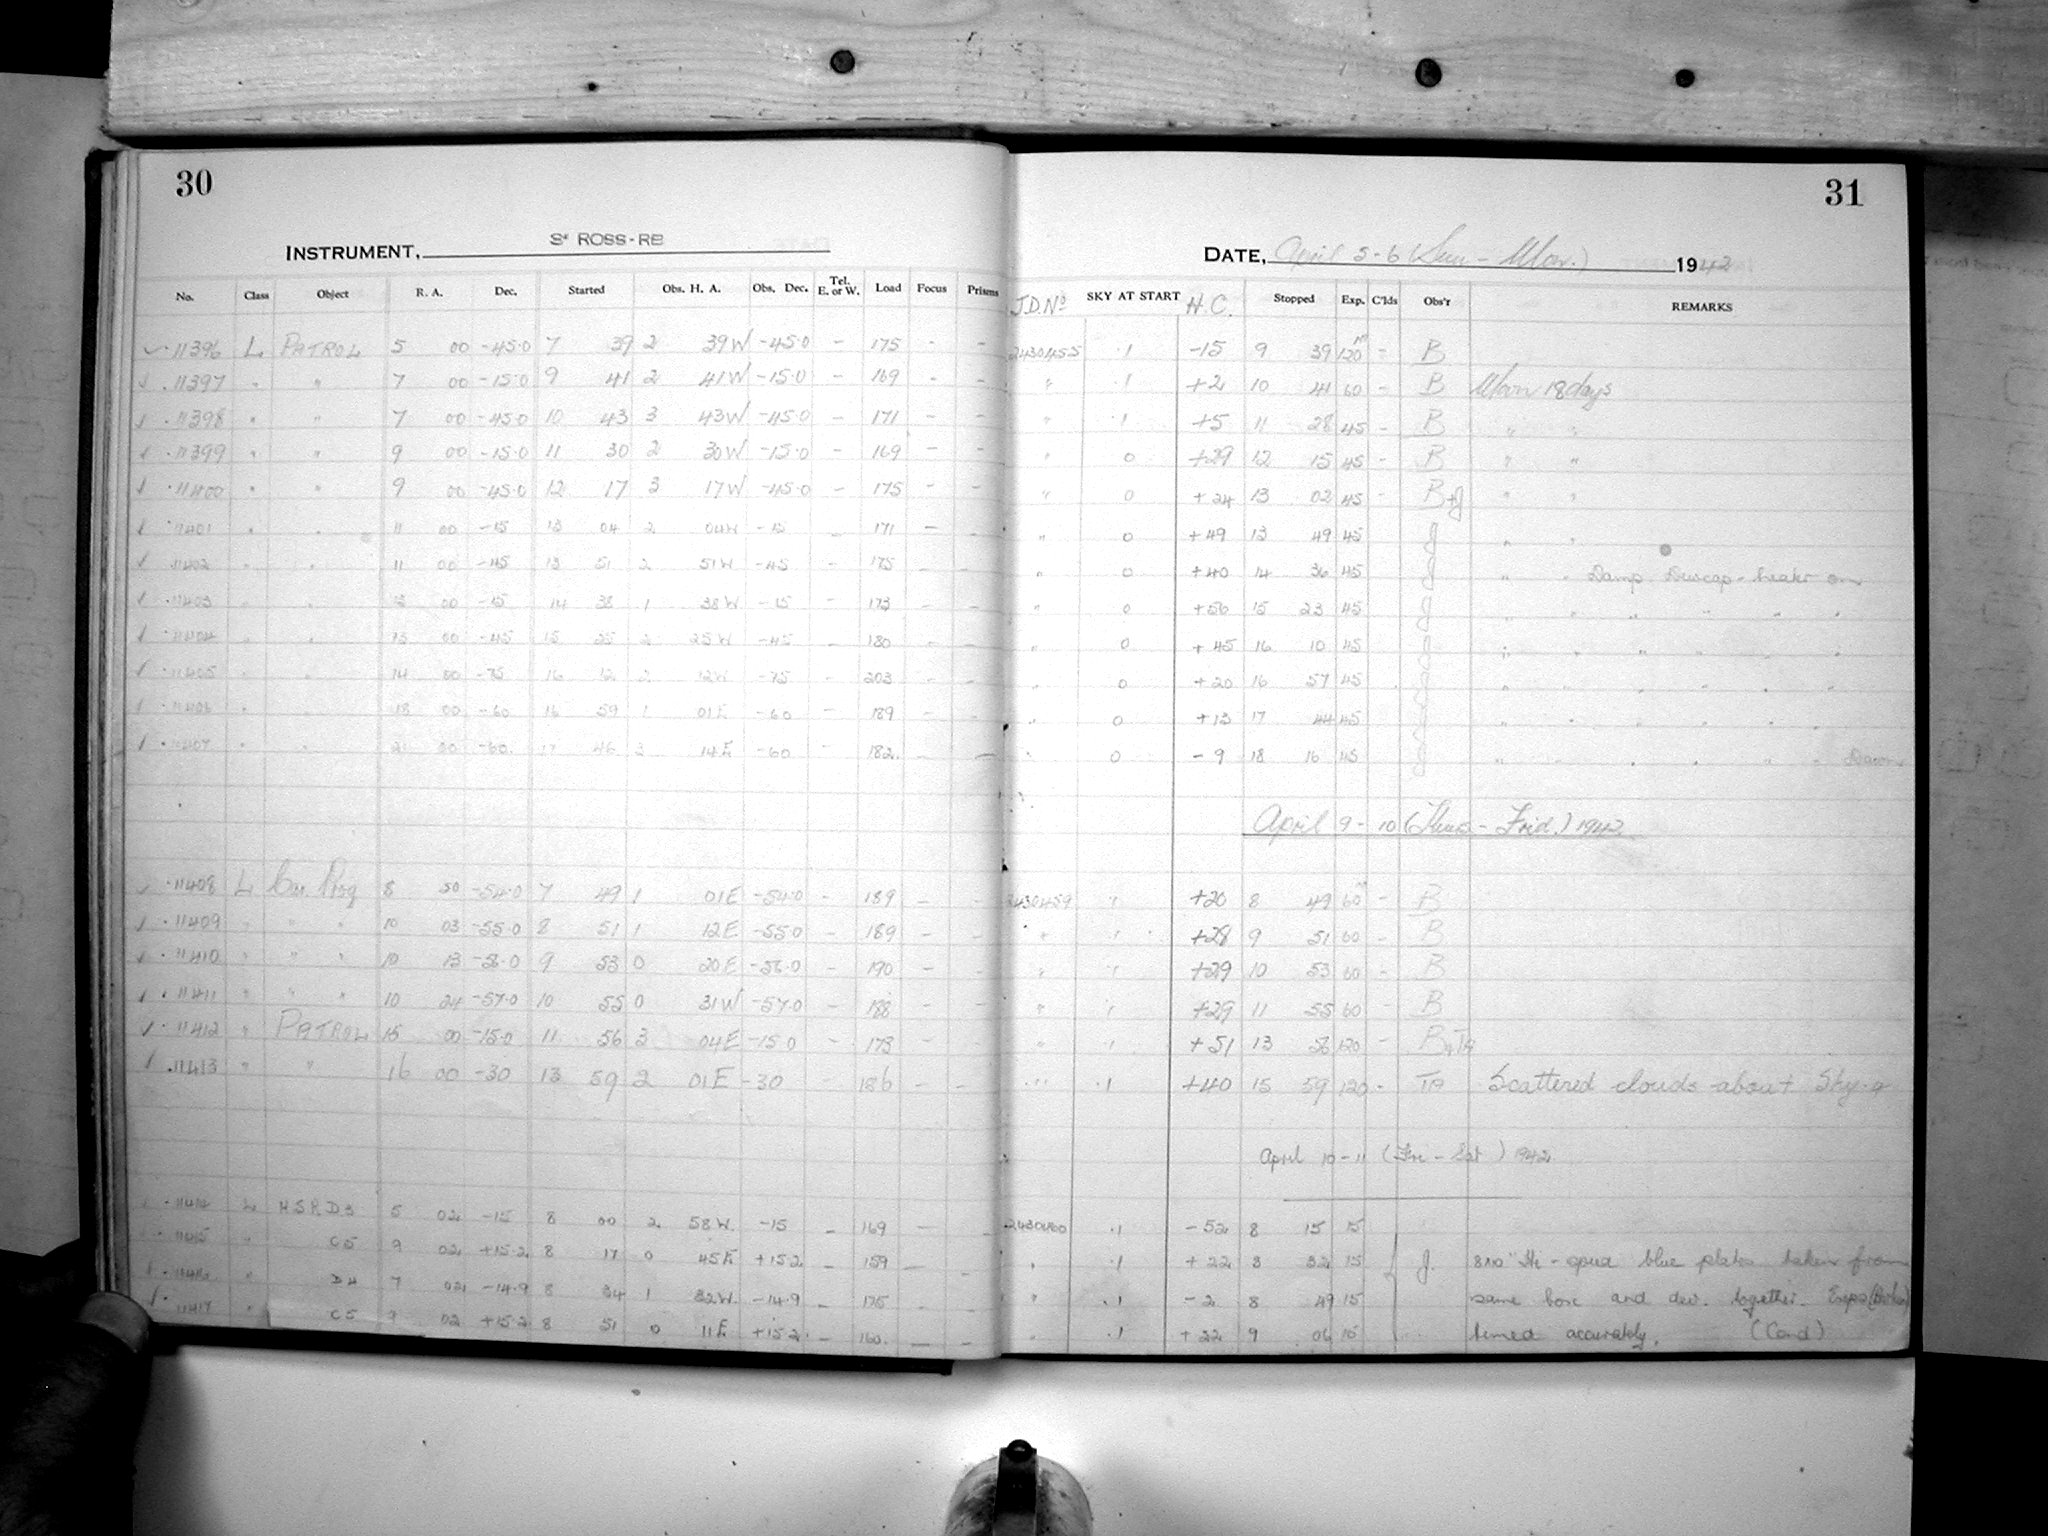 30
INSTRUMENT, 3" ROSS-RB
No. Class Object R. A. Dec. Started Obs. H. A. Obs. Dec. Tel. E. or W. Load Focus Prisms
11396 L PATROL 5 00 -45.0 7 39 2 39W -45.0 - 175 - -
11397 " " 7 00 -15.0 9 41 2 41W -15.0 - 169 - -
11398 " " 7 00 -45.0 10 43 3 43W -45.0 - 171 - -
11399 " " 9 00 -15.0 11 30 2 30W -15.0 - 169 - -
11400 " " 9 00 -45.0 12 17 3 17W -45.0 - 175 - -
11401 " " 11 00 -15 13 04 2 04W -15 - 171 - -
11402 " " 11 00 -45 13 51 2 51W -45 - 175 - -
11403 " " 13 00 -15 14 38 1 38W -15 - 173 - -
11404 " " 13 00 -45 15 25 2 25W -45 - 180 - -
11405 " " 14 00 -75 16 12 2 12W -75 - 203 - -
11406 " " 18 00 -60 16 59 1 01E -60 - 189 - -
11407 " " 21 00 -60 17 46 3 14E -60 - 182 - -
11408 L Car. Prog 8 50 -54.0 7 49 1 01E -54.0 - 189 - -
11409 " " " 10 03 -55.0 8 51 1 12E -55.0 - 189 - -
11410 " " " 10 13 -56.0 9 53 0 20E -56.0 - 190 - -
11411 " " " 10 24 -57.0 10 55 0 31W -57.0 - 188 - -
11412 " PATROL 15 00 -15.0 11 56 3 04E -15.0 - 173 - -
11413 " " 16 00 -30 13 59 2 01E -30 - 186 - -
11414 L HSRD3 5 02 -15 8 00 2 58W -15 - 169 - -
11415 " C5 9 02 +15.2 8 17 0 45E +15.2 - 159 - -
11416 " D4 7 02 -14.9 8 34 1 32W -14.9 - 175 - -
11417 " C5 9 02 +15.2 8 51 0 11E +15.2 - 160 - -
31
DATE, April 5-6 (Sun - Mon.) 1942
J.D. No SKY AT START H.C. Stopped Exp. C'lds Obs'r REMARKS
2430455 .1 -15 9 39 120m - B
" .1 +2 10 41 60 - B Moon 18 days
" .1 +5 11 28 45 - B " "
" 0 +29 12 15 45 - B " "
" 0 +24 13 02 45 - B+J " "
" 0 +49 13 49 45 J " "
" 0 +40 14 36 45 J " " Damp Dewcap-heater on
" 0 +56 15 23 45 J " " " " "
" 0 +45 16 10 45 J " " " " " "
" 0 +20 16 57 45 J " " " " " "
" 0 +13 17 44 45 J " " " " " "
" 0 -9 18 16 45 J " " " " " " Dawn
April 9-10 (Thur - Frid.) 1942
2430459 .1 +20 8 49 60m - B
" .1 +28 9 51 60 - B
" .1 +29 10 53 60 - B
" .1 +29 11 55 60 - B
" .1 +51 13 56 120 - B+TA
" .1 +40 15 59 120 - TA Scattered clouds about Sky
April 10-11 (Fri - Sat) 1942
2430460 .1 -52 8 15 15
" .1 +22 8 32 15 J. 8x10" Hi-speed blue plates taken from
" .1 -2 8 49 15 same box and dev. together. Exps
" .1 +22 9 06 15 timed accurately. (Cond)